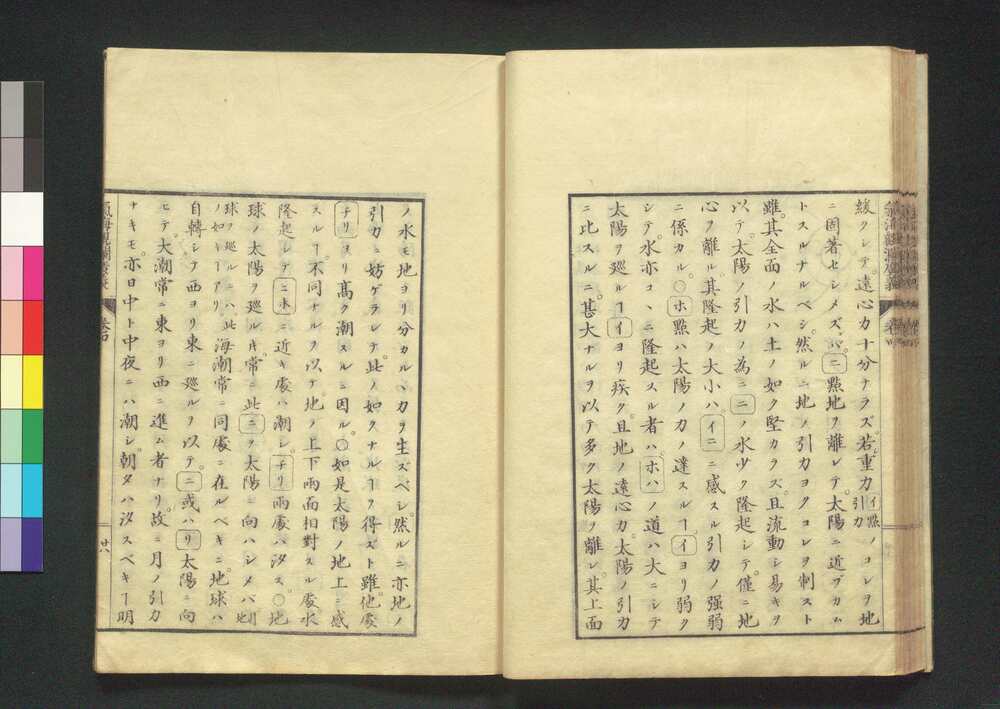 緩クシテ。遠心力十分ナラズ。若シ重力イ點引力ノコレヲ地
ニ固著セシメズバ。ニ點地ヲ離レテ太陽ニ近ヅカム
トスルナルベシ。然ルニ地ノ引力ヨクコレヲ制スト
雖。其全面ノ水ハ土ノ如ク堅カラズ。且流動シ易キヲ
以テ。太陽ノ引力ノ為ニニノ水少ク隆起シテ。僅ニ地
心ヲ離ル。其隆起ノ大小ハ。イニニ感スル引力ノ强弱
ニ係カル。○ホ點ハ太陽ノ力ノ達スルヿ。イヨリ弱ク
シテ。水亦コヽニ隆起スル者ハ。ホハノ道ハ大ニシテ
太陽ヲ廻ルヿイヨリ疾ク。且地ノ遠心力。太陽ノ引力
ニ比スルニ。甚大ナルヲ以テ多ク太陽ヲ離レ。其上面
ノ水モ地ヨリ分カルヽ力ヲ生ズベシ。然ルニ亦地ノ
引力ニ妨ゲラレテ。此ノ如クナルヿヲ得ズト雖。他處
チリヨリ髙ク潮スルニ因ル。○如是太陽ノ地上ニ感
スルヿ。不同ナルヲ以テ。地ノ上下両面相對スル處水
隆起シテニホニ近キ處ハ潮シ。チリ両處ハ汐ス。○地
球ノ太陽ヲ廻ルキ。常ニ此ニヲ太陽ニ向ハシメバ月ノ地
球ヲ廻ルニハ此ノ如キヿアリ海潮常ニ同處ニ在ルベキニ。地球ハ
自轉シテ西ヨリ東ニ廻ルヲ以テ。ニ或ハリ太陽ニ向
ヒテ。大潮常ニ東ヨリ西ニ進ム者ナリ。故ニ月ノ引力
ナキモ。亦日中ト中夜ニハ潮シ。朝夕ハ汐スベキヿ明
卄八